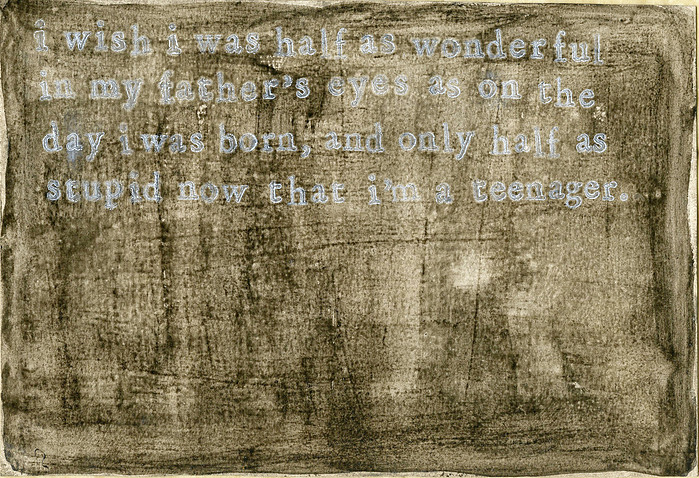 i wish i was half as wonderful
in my father's eyes as on the
day i was born, and only half as
stupid now that i'm a teenager.